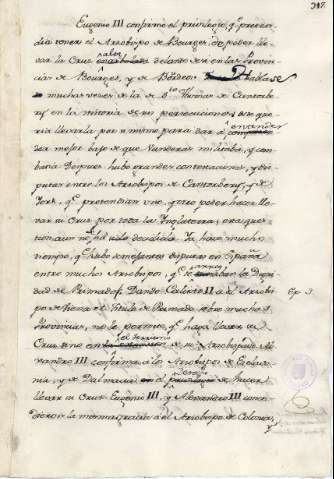 Eugenio III confirmo el privilegio, qᵉ preten-
dia tener el Arzobispo de Bourges, de poder lle-
var la Cruz alta delante de si en las Provin-
cias de Bourges, y de Burdeos. Hablase
muchas veces de la de Sto. Thomas de Cantorbe-
ri en la historia de sus persecuciones, y se que-
ria llevarla por si mismo para dar à entender
mejor bajo de que Vanderas militaba, y com-
batia. Despues hubo grandes contestaciones, y dis-
putas entre los Arzobispos de Cantorberi, y de
York, qᵉ pretendian uno, y otro poder hacer lle-
var su Cruz por toda la Inglaterra; esta ques-
tion aun no ha sido decidida. Ya hace mucho
tiempo, qᵉ hubo semejantes disputas en España
entre muchos Arzobispos, qᵉ la Digni-
dad de Primados. Dando Calixto II à el Arzobis-
po de Viena el titulo de Primado sobre muchas
Provincias, no le permite qᵉ haga llevar su
Cruz sino en el terreno de su Arzobispado. Ale-
xandro III confirma à los Arzobispos de Esclavo-
nia, y de Dalmacia el derecho de hacer
llevar su Cruz. Eugenio III, y Alexandro III conce-
dieron la misma gracia à el Arzobispo de Colonia,
Ep. 3.